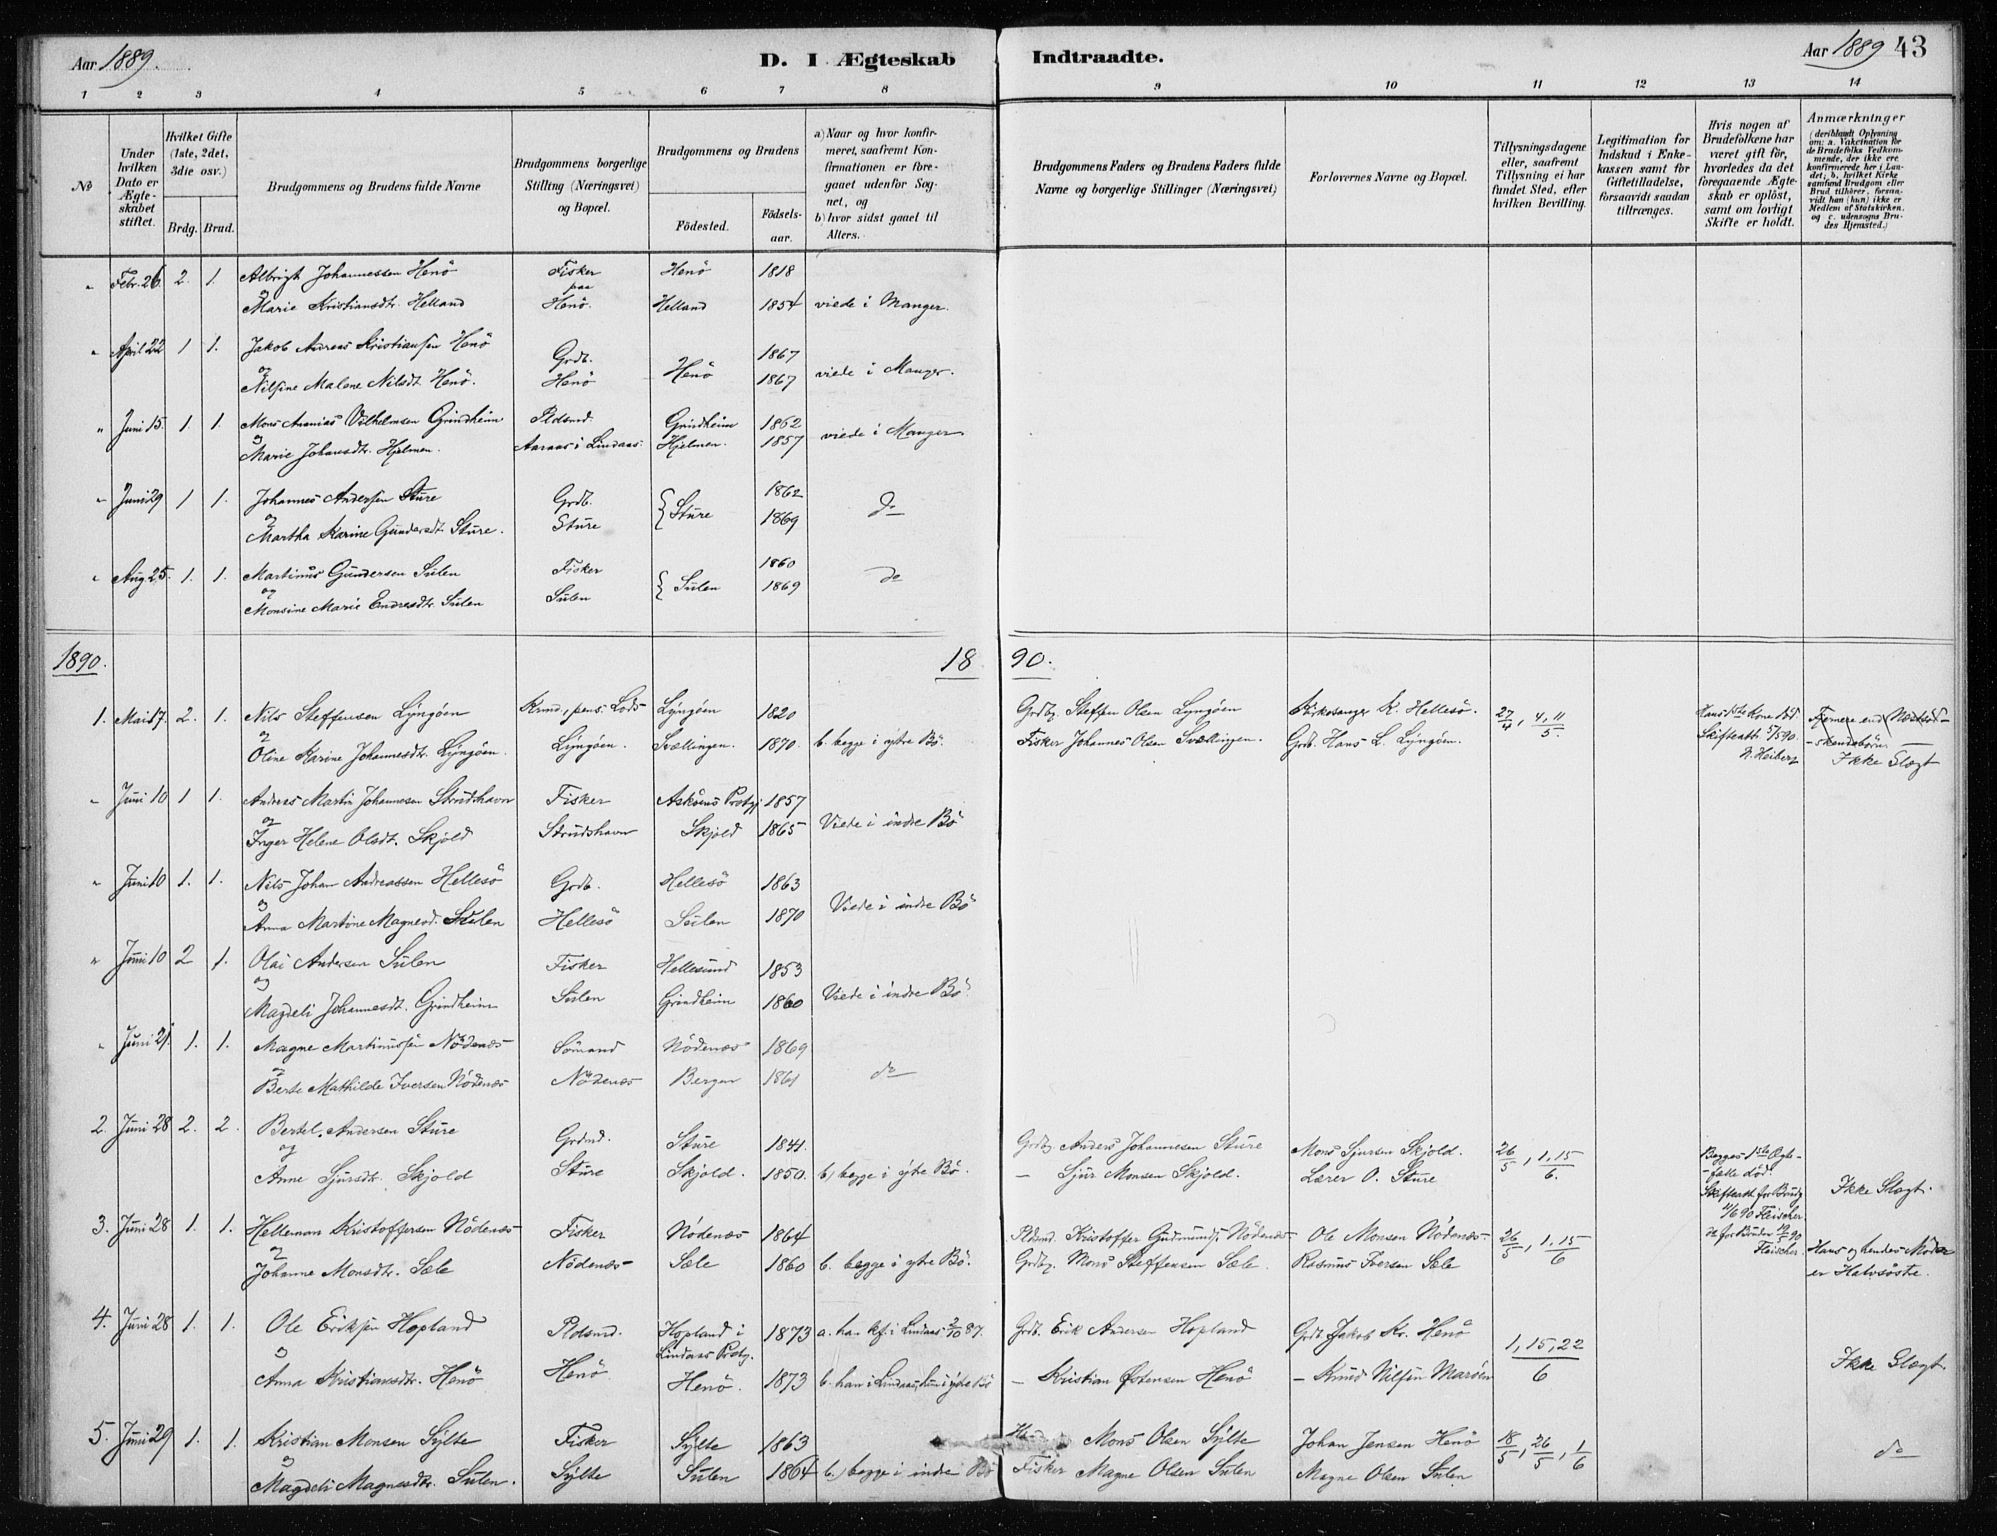 Aar 1889.
D. I Ægteskab Indtraadte.
Aar 1889 43
1 2 3 4 5 6 7 8 9 10 11 12 13 14
No
Under hvilken Dato er Ægteskabet stiftet.
Hvilket Gifte (1ste, 2det, 3die osv.)
Brdg. Brud.
Brudgommens og Brudens fulde Navne
Brudgommens borgerlige Stilling (Næringsvei) og Bopæl.
Brudgommens og Brudens
Fødested.
Fødselsaar.
a) Naar og hvor konfirmeret, saafremt Konfirmationen er foregaaet udenfor Sognet, og
b) hvor sidst gaaet til Alters.
Brudgommens Faders og Brudens Faders fulde Navne og borgerlige Stillinger (Næringsvei)
Forlovernes Navne og Bopæl.
Tillysningsdagene eller, saafremt Tillysning ei har fundet Sted, efter hvilken Bevilling.
Legitimation for Indskud i Enkekassen samt for Giftetilladelse, forsaavidt saadan tiltrænges.
Hvis nogen af Brudefolkene har været gift før, hvorledes da det foregaaende Ægteskab er opløst, samt om lovligt Skifte er holdt.
Anmærkninger
(deriblandt Oplysning om: a. Vakcination for de Brudefolks Vedkommende, der ikke ere konfirmerede her i Landet; b. hvilket Kirkesamfund Brudgom eller Brud tilhører, forsaavidt han (hun) ikke er Medlem af Statskirken, og c. udensogns Brudes Hjemsted.)
" Febr. 26. 2. 1. Albrigt Johannessen Henö Fisker Henö 1818
og Marie Kristiansdtr. Helland paa Henö. Helland 1854 viede i Manger.
" April 22 1 1. Jakob Andreas Kristiansen Henö Grdb. 1867
og Nilsine Malene Nilsdt. Henö. Henö Henö 1867 viede i Manger.
" Juni 15. 1 1. Mons Ananias Vilhelmsen Grindheim Pldsmd. Grindheim 1862
og Marie Johansdtr. Hjelmen. Aaraas i Lindaas. Hjelmen. 1857 viede i Manger
" Juni 29 1 1. Johannes Andersen Sture Grdb. 1862
og Martha Karine Gundersdt. Sture. Sture Sture 1869 do
" Aug. 25. 1. 1. Martinus Gundersen Sulen Fisker 1860
og Monsine Marie Endresdtr. Sulen Sulen Sulen 1869 do
1890. 18 90.
1. Mai 17. 2. 1. Nils Steffensen Lyngöen Kmd., pens. Lods Lyngöen 1820 Grdbg. Steffen Olsen Lyngöen Kirkesanger K. Hellesö. 27/4, 4, 11/5 Hans 1ste Kone död. Fjernere end Næstsödskendebörn.
og Oline Karine Johannesdtr. Lyngöen. Lyngöen. Svællingen. 1870. b. begge i ytre Bö. Fisker Johannes Olsen Svællingen. Grdb. Hans L. Lyngöen. Skifteatt. 3/5 90. N. Heiberg Ikke Slægt
" Juni 10 1 1. Andreas Martin Johannesen Strudshavn Fisker Asköens Prstgj 1857
og Inger Helene Olsdt. Skjold Strudshavn Skjold 1865 Viede i indre Bö
" Juni 10 1. 1. Nils Johan Andreassen Hellesö Grdb. Hellesö 1863
og Anna Martine Magnesd. Sulen Hellesö Sulen 1870 Viede i indre Bö
" Juni 10 2 1. Olai Andersen Sulen Fisker Hellesund 1853
og Magdeli Johannesdt. Grindheim Sulen Grindheim 1860 Viede i indre Bö.
" Juni 21. 1. 1. Magne Martinussen Nödenæs Sömand Nödenæs 1869
og Berte Mathilde Iversen Nödenæs Nödenæs Bergen 1861 do
2. Juni 28 2. 2. Bertel Andersen Sture Grdmd. Sture 1841. Grdbg Anders Johannesen Sture Mons Sjursen Skjold. 26/5, 1, 15/6. Begges 1ste Ægtefælle död.
og Anne Sjursdtr. Skjold Sture Skjold. 1850. b) begge i ytre Bö. — Sjur Monsen Skjold. Lærer O. Sture Skifteatt for Brudg 4/6 90 Fleischer Ikke Slægt.
3. Juni 28 1. 1. Helleman Kristoffersen Nödenæs Fisker Nödenæs 1864 Pldsmd. Kristoffer Gudmunds. Nödenæs Ole Monsen Nödenæs 26/5, 1, 15/6 og for Bruden 19/5 90 Fleischer.
og Johanne Monsdtr. Sæle Nödenæs Sæle 1860 b. begge i ytre Bö. Grdbg. Mons Steffensen Sæle. Rasmus Iversen Sæle Hans og hendes Moder er Halvsöstre.
4. Juni 28 1. 1. Ole Eriksen Hopland Pldsmd. Hopland i Lindaas Prstg. 1873 a. han kf. i Lindaas 2/10 87. Grdb. Erik Andersen Hopland Grdb. Jakob Kr. Henö 1, 15, 22/6
og Anna Kristiansdtr. Henö Henö Henö. 1873 b. han i Lindaas, hun i ytre Bö — Kristian Östensen Henö — Knud Nilsen Maröen Ikke Slægt.
5. Juni 29 1. 1. Kristian Monsen Sylte Fisker Sylte 1863 Mons Olsen Sylte Johan Jensen Henö 18/5, 26/5, 1/6 do
og Magdeli Magnesdtr. Sulen. Sylte Sulen 1864 b.) begge i indre Bö Fisker Magne Olsen Sulen Magne Olsen Sulen